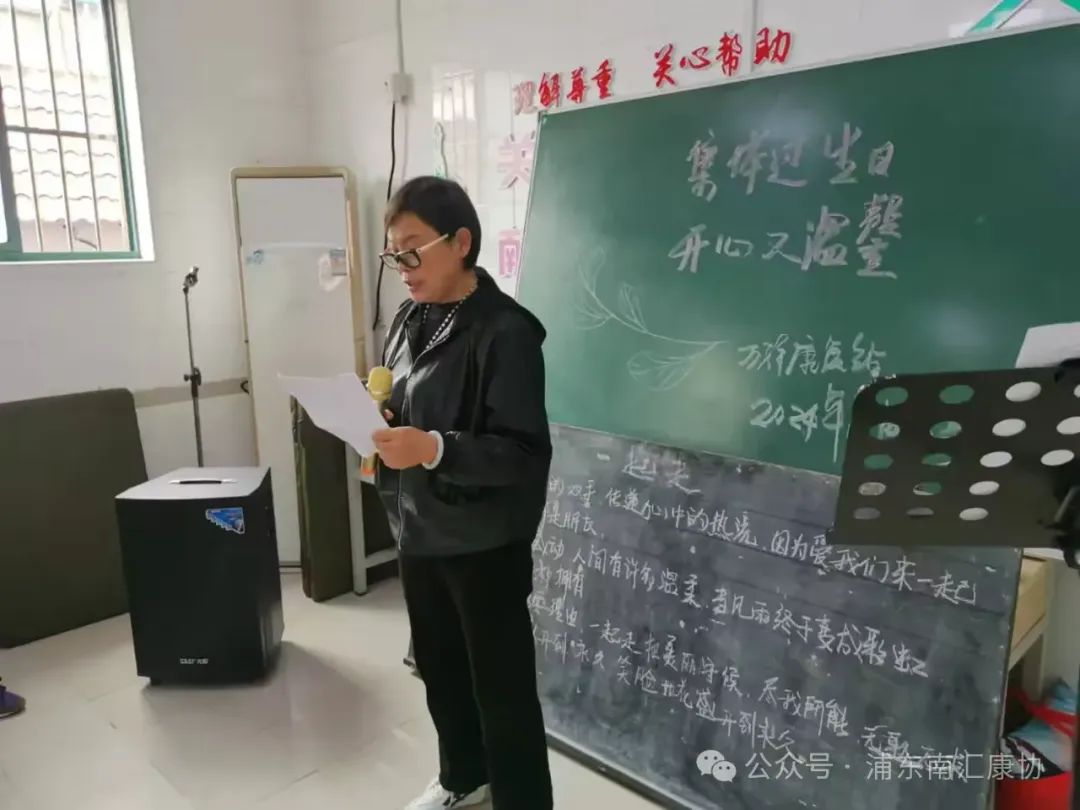 理解尊重 关心帮助
关
南
集体过生日
开心又温馨
万祥康复站
2024年
一起走
心手传递心中的热流 因为爱我们来一起
是朋友
动 人间有许多温柔 当风雨终于变成彩虹
拥有
理由 一起走 把美丽守候 尽我所能 无
开到永久 笑脸如花盛开到永久
公众号 · 浦东南汇康协